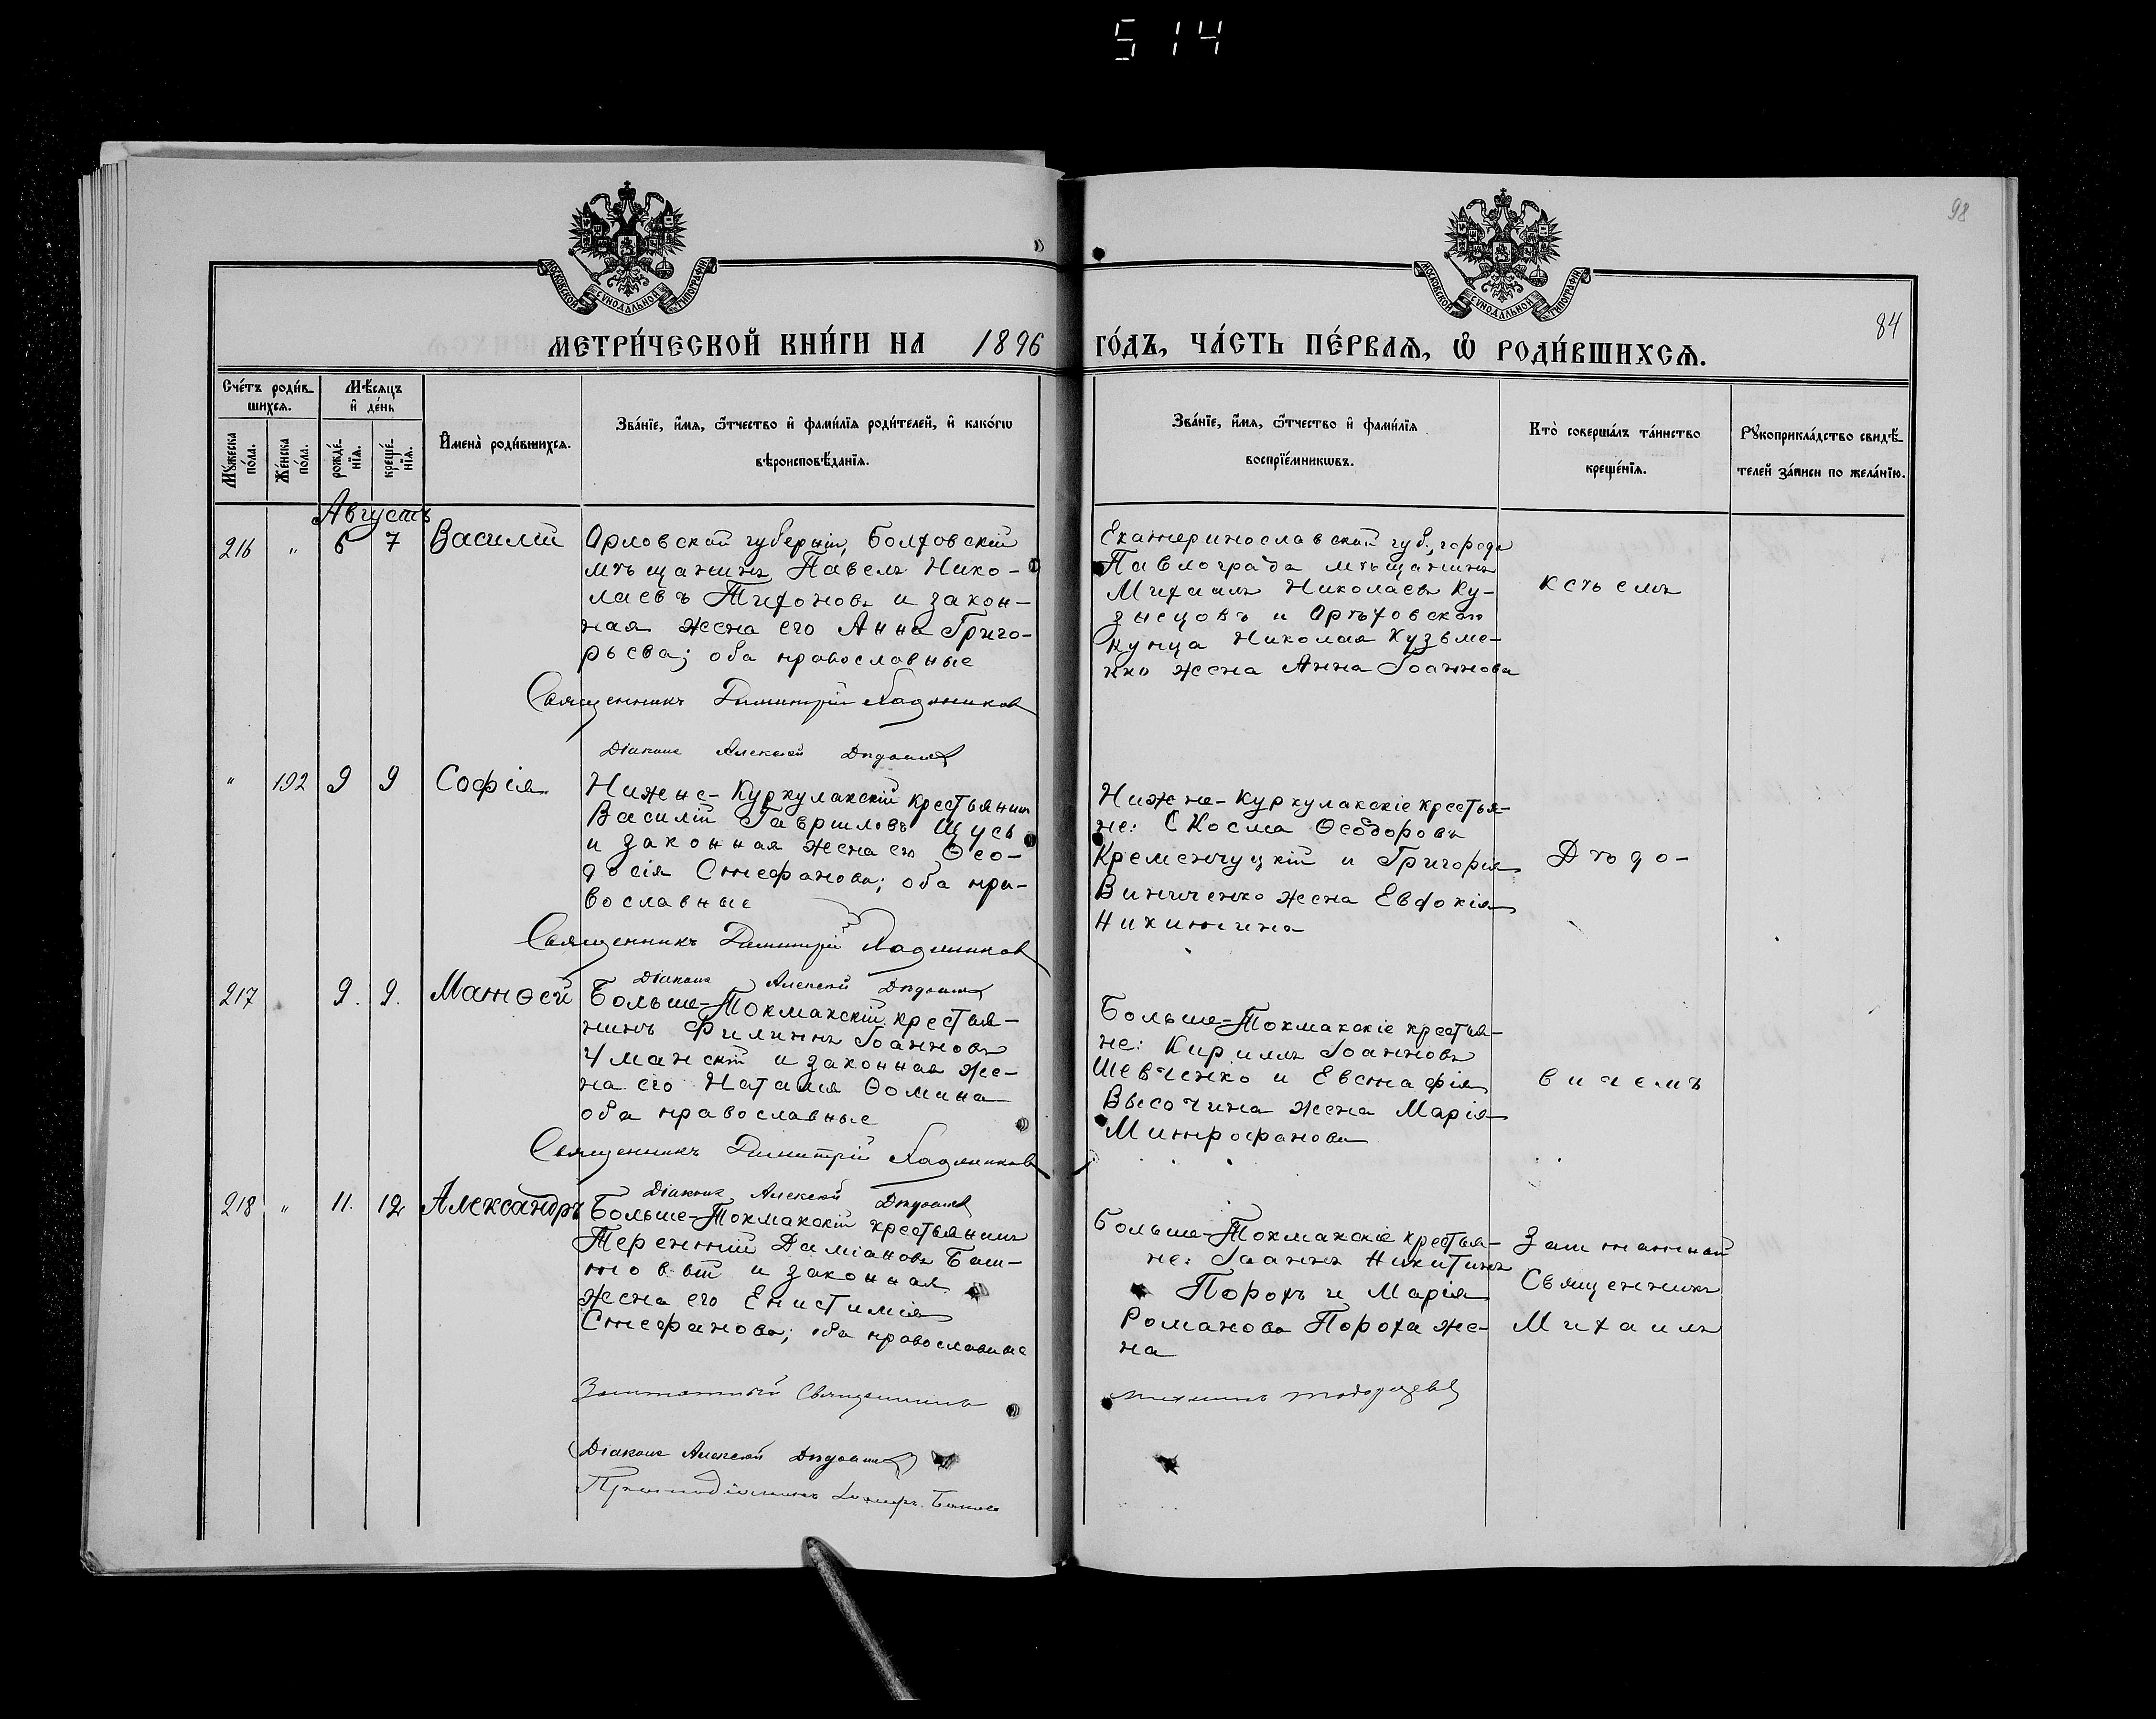 514
98
84
МОСКОВСКОЙ СѴНОДАЛЬНОЙ ТИПОГРАФІИ
МОСКОВСКОЙ СѴНОДАЛЬНОЙ ТИПОГРАФІИ
МЕТРИ́ЧЕСКОЙ КНИ́ГИ НА 1896 ГО́ДЪ, ЧА́СТЬ ПЕ́РВАѦ, Ѡ҆ РОДИ́ВШИХСѦ.
Сче́тъ роди́в-
шихсѧ.
Мꙋ́жеска по́ла.
Же́нска пола.
Мѣ́сѧцъ
и҆ де́нь
рожде́нїѧ.
креще́нїѧ.
И҆мена̀ роди́вшихсѧ.
Зва́нїе, и҆́мѧ, ѻ҆́тчество и҆ фами́лїѧ роди́телей, и҆ како́гѡ
вѣроисповѣ́данїѧ.
Зва́нїе, и҆́мѧ, ѻ҆́тчество и҆ фами́лїѧ
воспрїе́мникѡвъ.
Кто̀ соверша́лъ та́инство
креще́нїѧ.
Рꙋкоприкла́дство свидѣ́-
телей за́писи по жела́нїю.
Августъ
216 " 6 7 Василій
Орловской губерніи, Болховскій
мѣщанинъ Павелъ Нико-
лаевъ Тихоновъ и закон-
ная жена его Анна Григо-
рьева; оба православные
Священникъ Димитрій
Діаконъ Алексей
Екатеринославской губ., города
Павлограда мѣщанинъ
Михаилъ Николаевъ Ку-
знецовъ и Орѣховскаго
купца Николая Кузьме-
нко жена Анна Іоаннова
" 192 9 9 Софія
Нижне-Куркулакскій крестьянинъ
Василій Гавриловъ Щусь
и законная жена его Ѳео-
досія Стефанова; оба пра-
вославные
Священникъ Димитрій
Діаконъ Алексей
Нижне-Куркулакскіе крестья-
не: Косма Ѳеодоровъ
Кременчуцкій и Григорія
Виниченко жена Евдокія
Никитина
217 9. 9. Матѳей
Больше-Токмакскій крестья-
нинъ Филиппъ Іоанновъ
Уманскій и законная же-
на его Наталія Ѳомина
оба православные
Священникъ Димитрій
Діаконъ Алексей
Больше-Токмакскіе крестья-
не: Кириллъ Іоанновъ
Шевченко и Евстафія
Высочина жена Марія
Митрофанова
218 " 11. 12 Александръ
Больше-Токмакскій крестьянинъ
Терентій Даміановъ Баш-
товый и законная
жена его Епистимія
Стефанова; оба православные
Заштатный Священникъ
Діаконъ Алексей
Больше-Токмакскіе крестья-
не: Іоаннъ Никитинъ
Порохъ и Марія
Романова Пороха же-
на
Михаилъ
Заштатный
Священникъ
Михаилъ